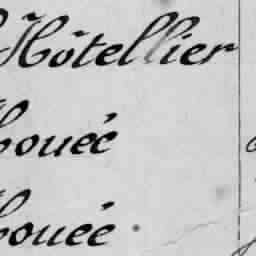 Hôtellier
houée
houée